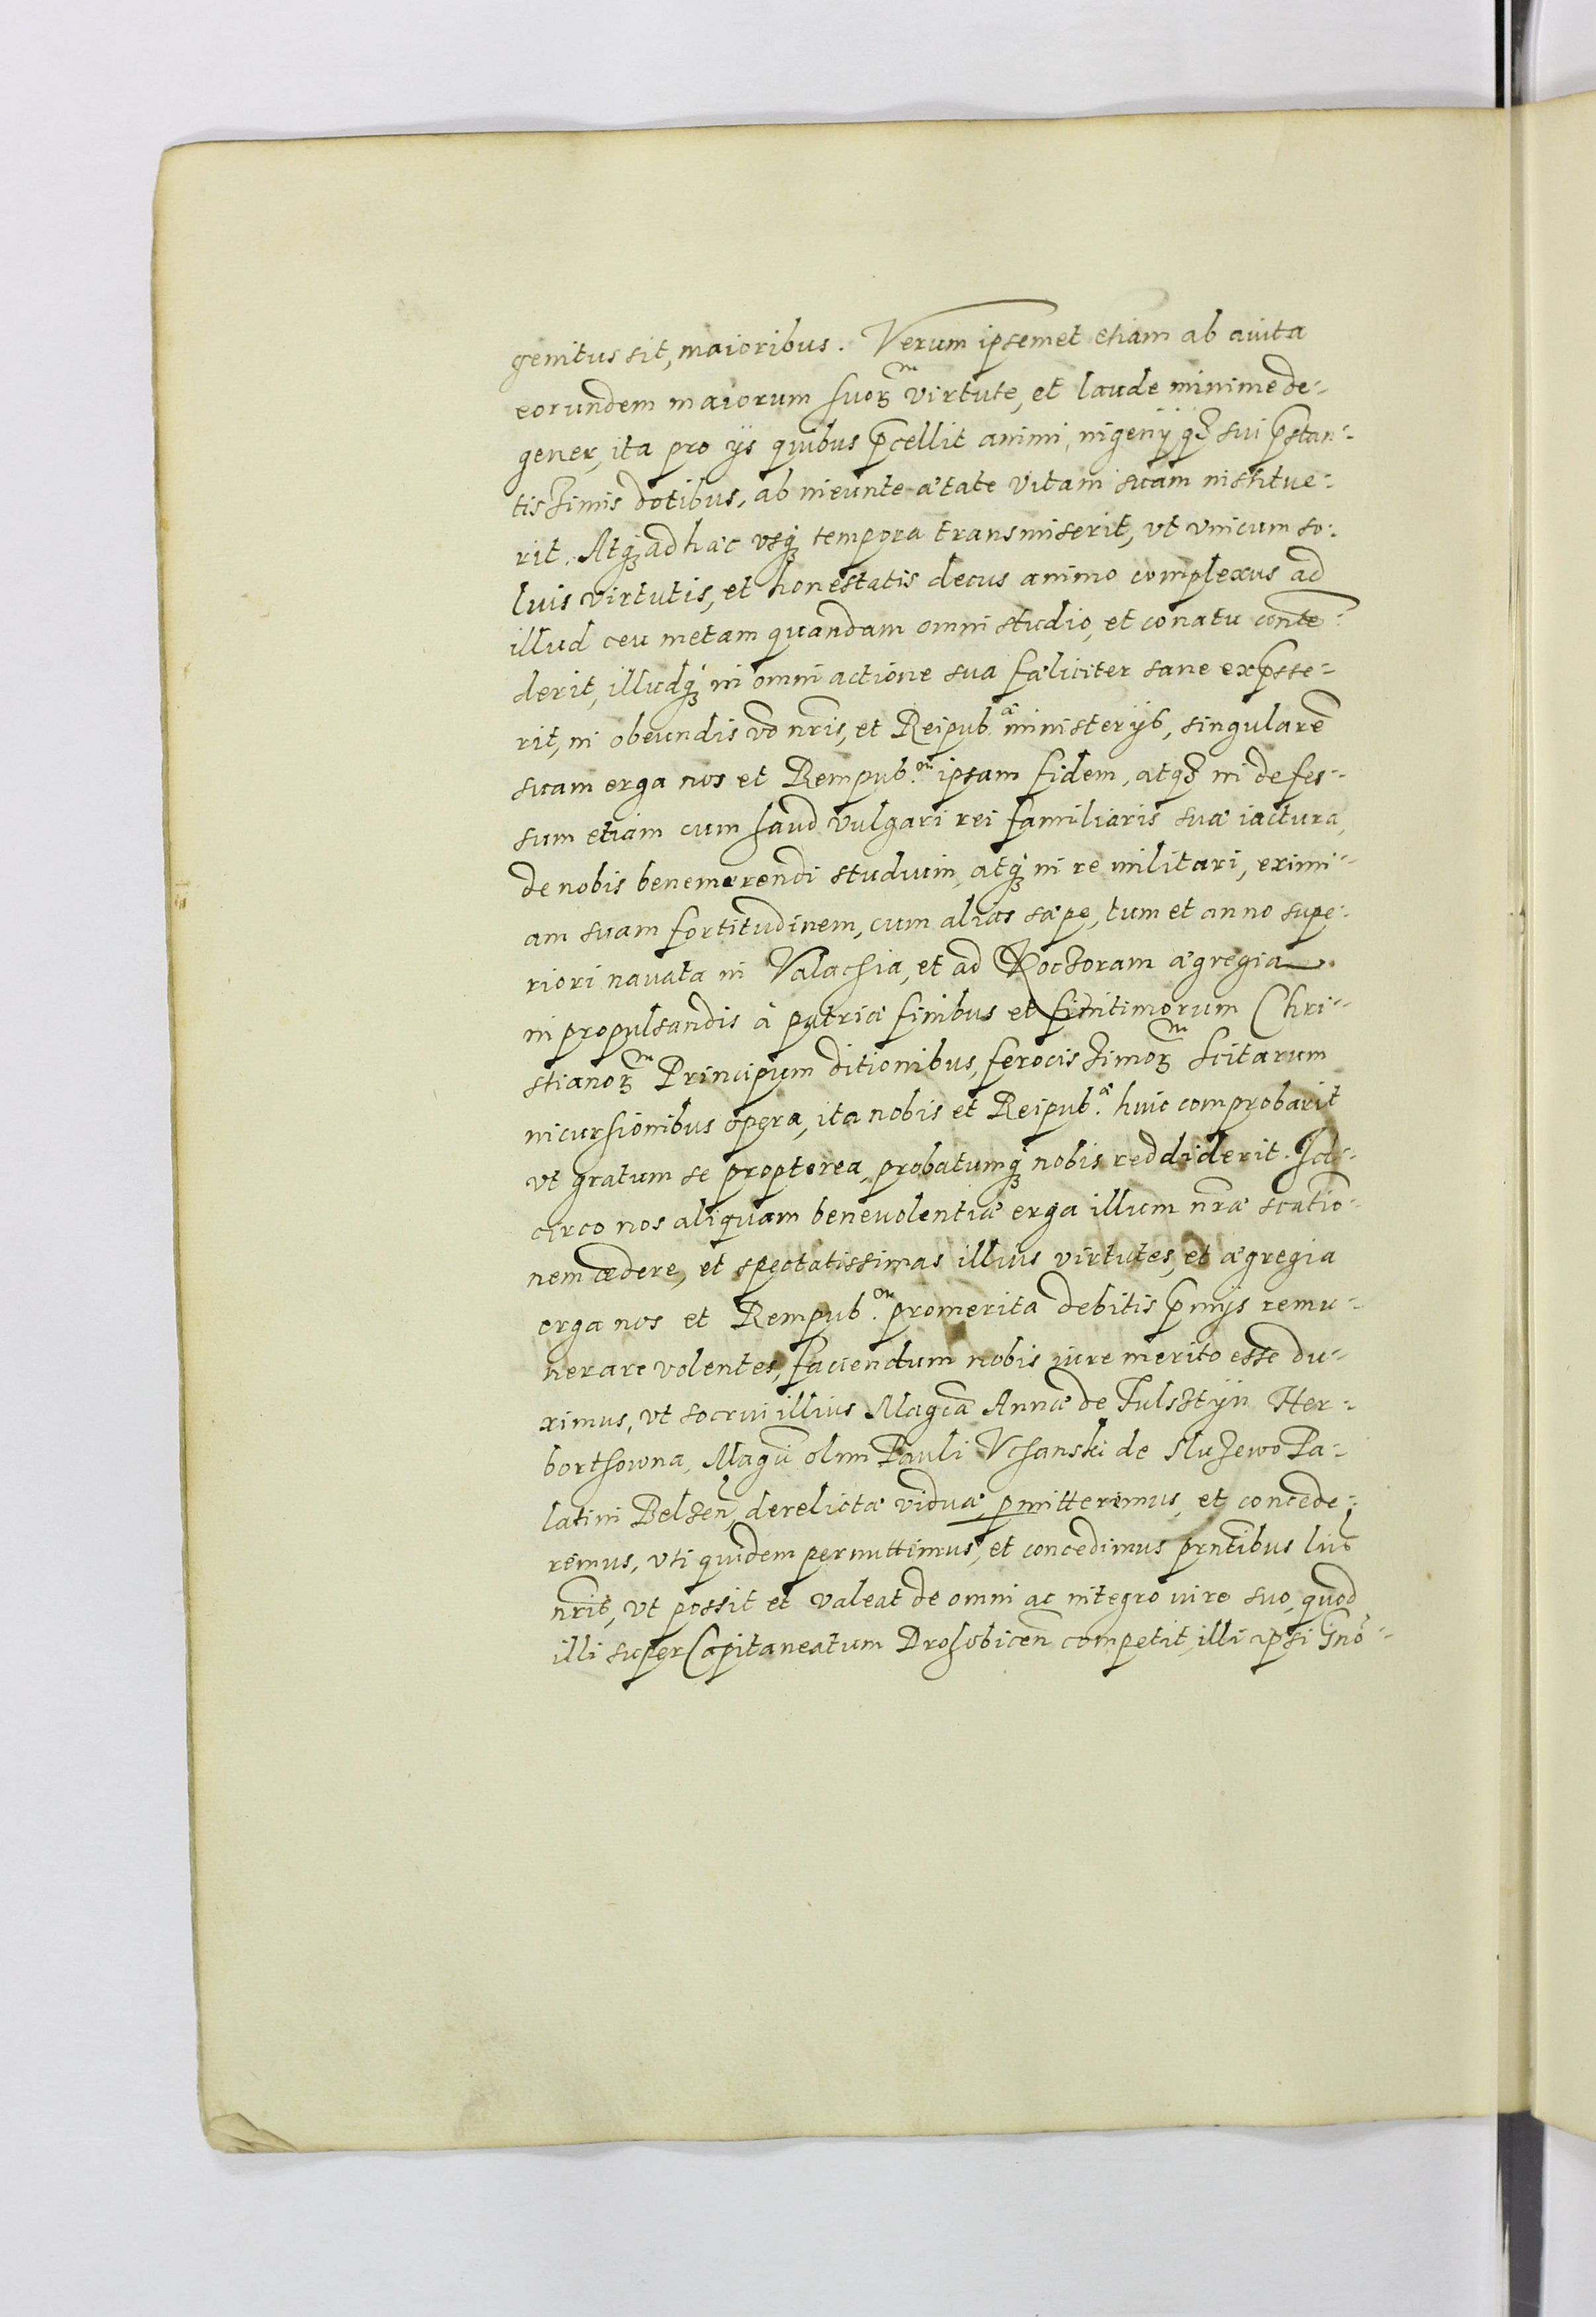 genitus sit, maioribus. Verum ipsemet etiam ab auita
eorundem maiorum suoꝝᵐ virtute, et laude minime de-
gener, ita pro ijs quibus p̄cellit animi, ingenijqꝫ sui p̄stan-
tissimis dotibus, ab ineunte ætate vitam suam institue-
rit. Atqꝫ ad hæc vsqꝫ tempora transmiserit, vt vnicum so-
lius virtutis, et honestatis decus animo complexus ad
illud ceu metam quandam omni studio, et conatu conte-
derit, illudqꝫ in omni actione sua fæliciter sane exp̄sse-
rit, in obeundis vo nr̄is, et Reipub.ᵃᵉ ministerijs, singularē
suam erga nos et Rempub.ᵉᵐ ipsam fidem, atqꝫ indefes-
sum etiam cum haud vulgari rei familiaris suæ iactura,
de nobis benemerendi studium, atqꝫ in re militari, eximi-
am suam fortitudinem, cum alias sæpe, tum et anno supe-
riori nauata in Valachia, et ad Roczoram ægregia
in propulsandis à patriæ finibus et finitimorum Chri-
stianoꝝᵐ Principum ditionibus, ferocissimoꝝᵐ Scitarum
incursionibus opera, ita nobis et Reipub.ᵃᵉ huic comprobarit
vt gratum se propterea, probatumqꝫ nobis reddiderit. Id-
circo nos aliquam beneuolentiæ erga illum nr̄æ
nem ædere, et spectatissimas illius virtutes, et ægregia
erga nos et Rempub.ᵉᵐ promerita debitis p̄mijs remu-
nerare volentes, faciendum nobis iure merito esse du-
ximus, vt socrui illius Magcæ Annæ de Fulsztijn Her-
borthowna, Magci olim Pauli Vchanski de Służewo Pa-
latini Belzeñ, derelictæ viduæ, pmitteremus, et concede-
remus, vti quidem permittimus, et concedimus prñtibus lris
nris, vt possit et valeat de omni ac integro iure suo, quod
illi super Capitaneatum Drohobiceñ competit, illi ipsi Gno-